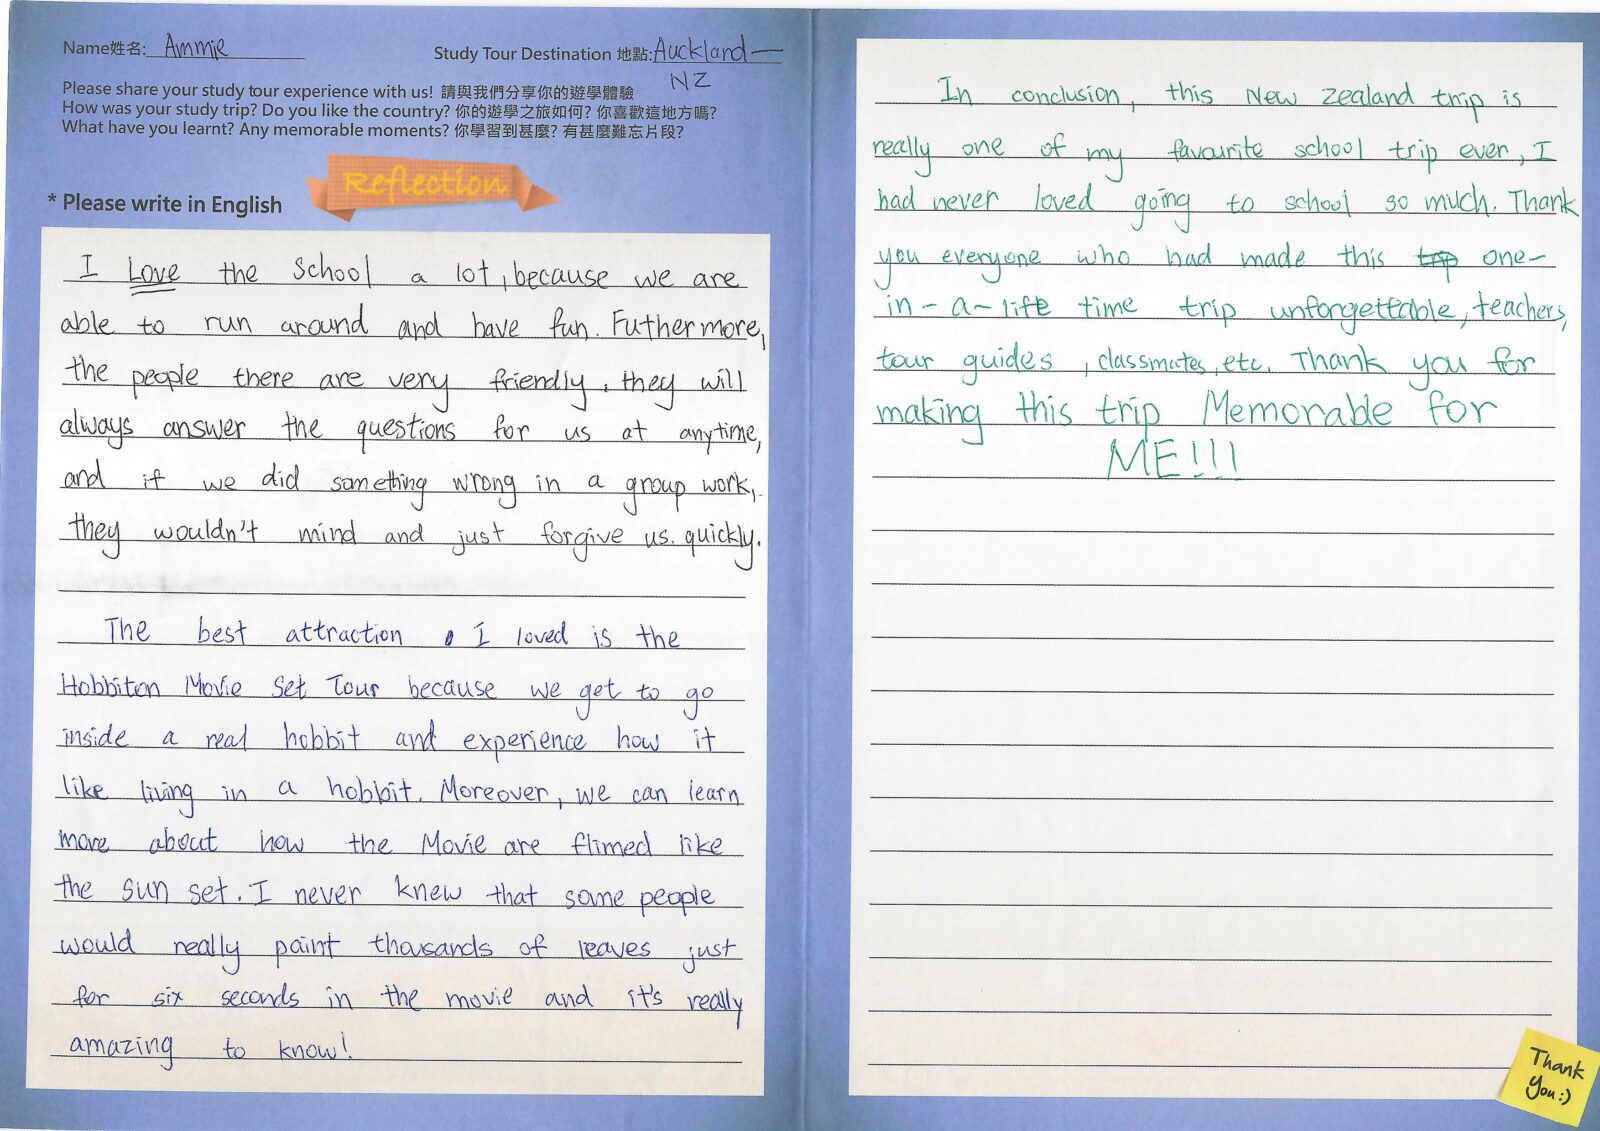 Name姓名: Ammie
Study Tour Destination 地點: Auckland—
NZ
Please share your study tour experience with us! 請與我們分享你的遊學體驗
How was your study trip? Do you like the country? 你的遊學之旅如何? 你喜歡這地方嗎?
What have you learnt? Any memorable moments? 你學習到甚麼? 有甚麼難忘片段?
Reflection
* Please write in English
I Love the school a lot, because we are
able to run around and have fun. Futhermore,
the people there are very friendly, they will
always answer the questions for us at anytime,
and if we did something wrong in a group work,
they wouldn't mind and just forgive us quickly.
The best attraction I loved is the
Hobbiton Movie Set Tour because we get to go
inside a real hobbit and experience how it
like living in a hobbit. Moreover, we can learn
more about how the Movie are flimed like
the sun set. I never knew that some people
would really paint thousands of leaves just
for six seconds in the movie and it's really
amazing to know!
In conclusion, this New Zealand trip is
really one of my favourite school trip ever, I
had never loved going to school so much. Thank
you everyone who had made this trip one-
in-a-life time trip unforgettable, teachers,
tour guides, classmates, etc. Thank you for
making this trip Memorable for
ME!!!
Thank
You :)